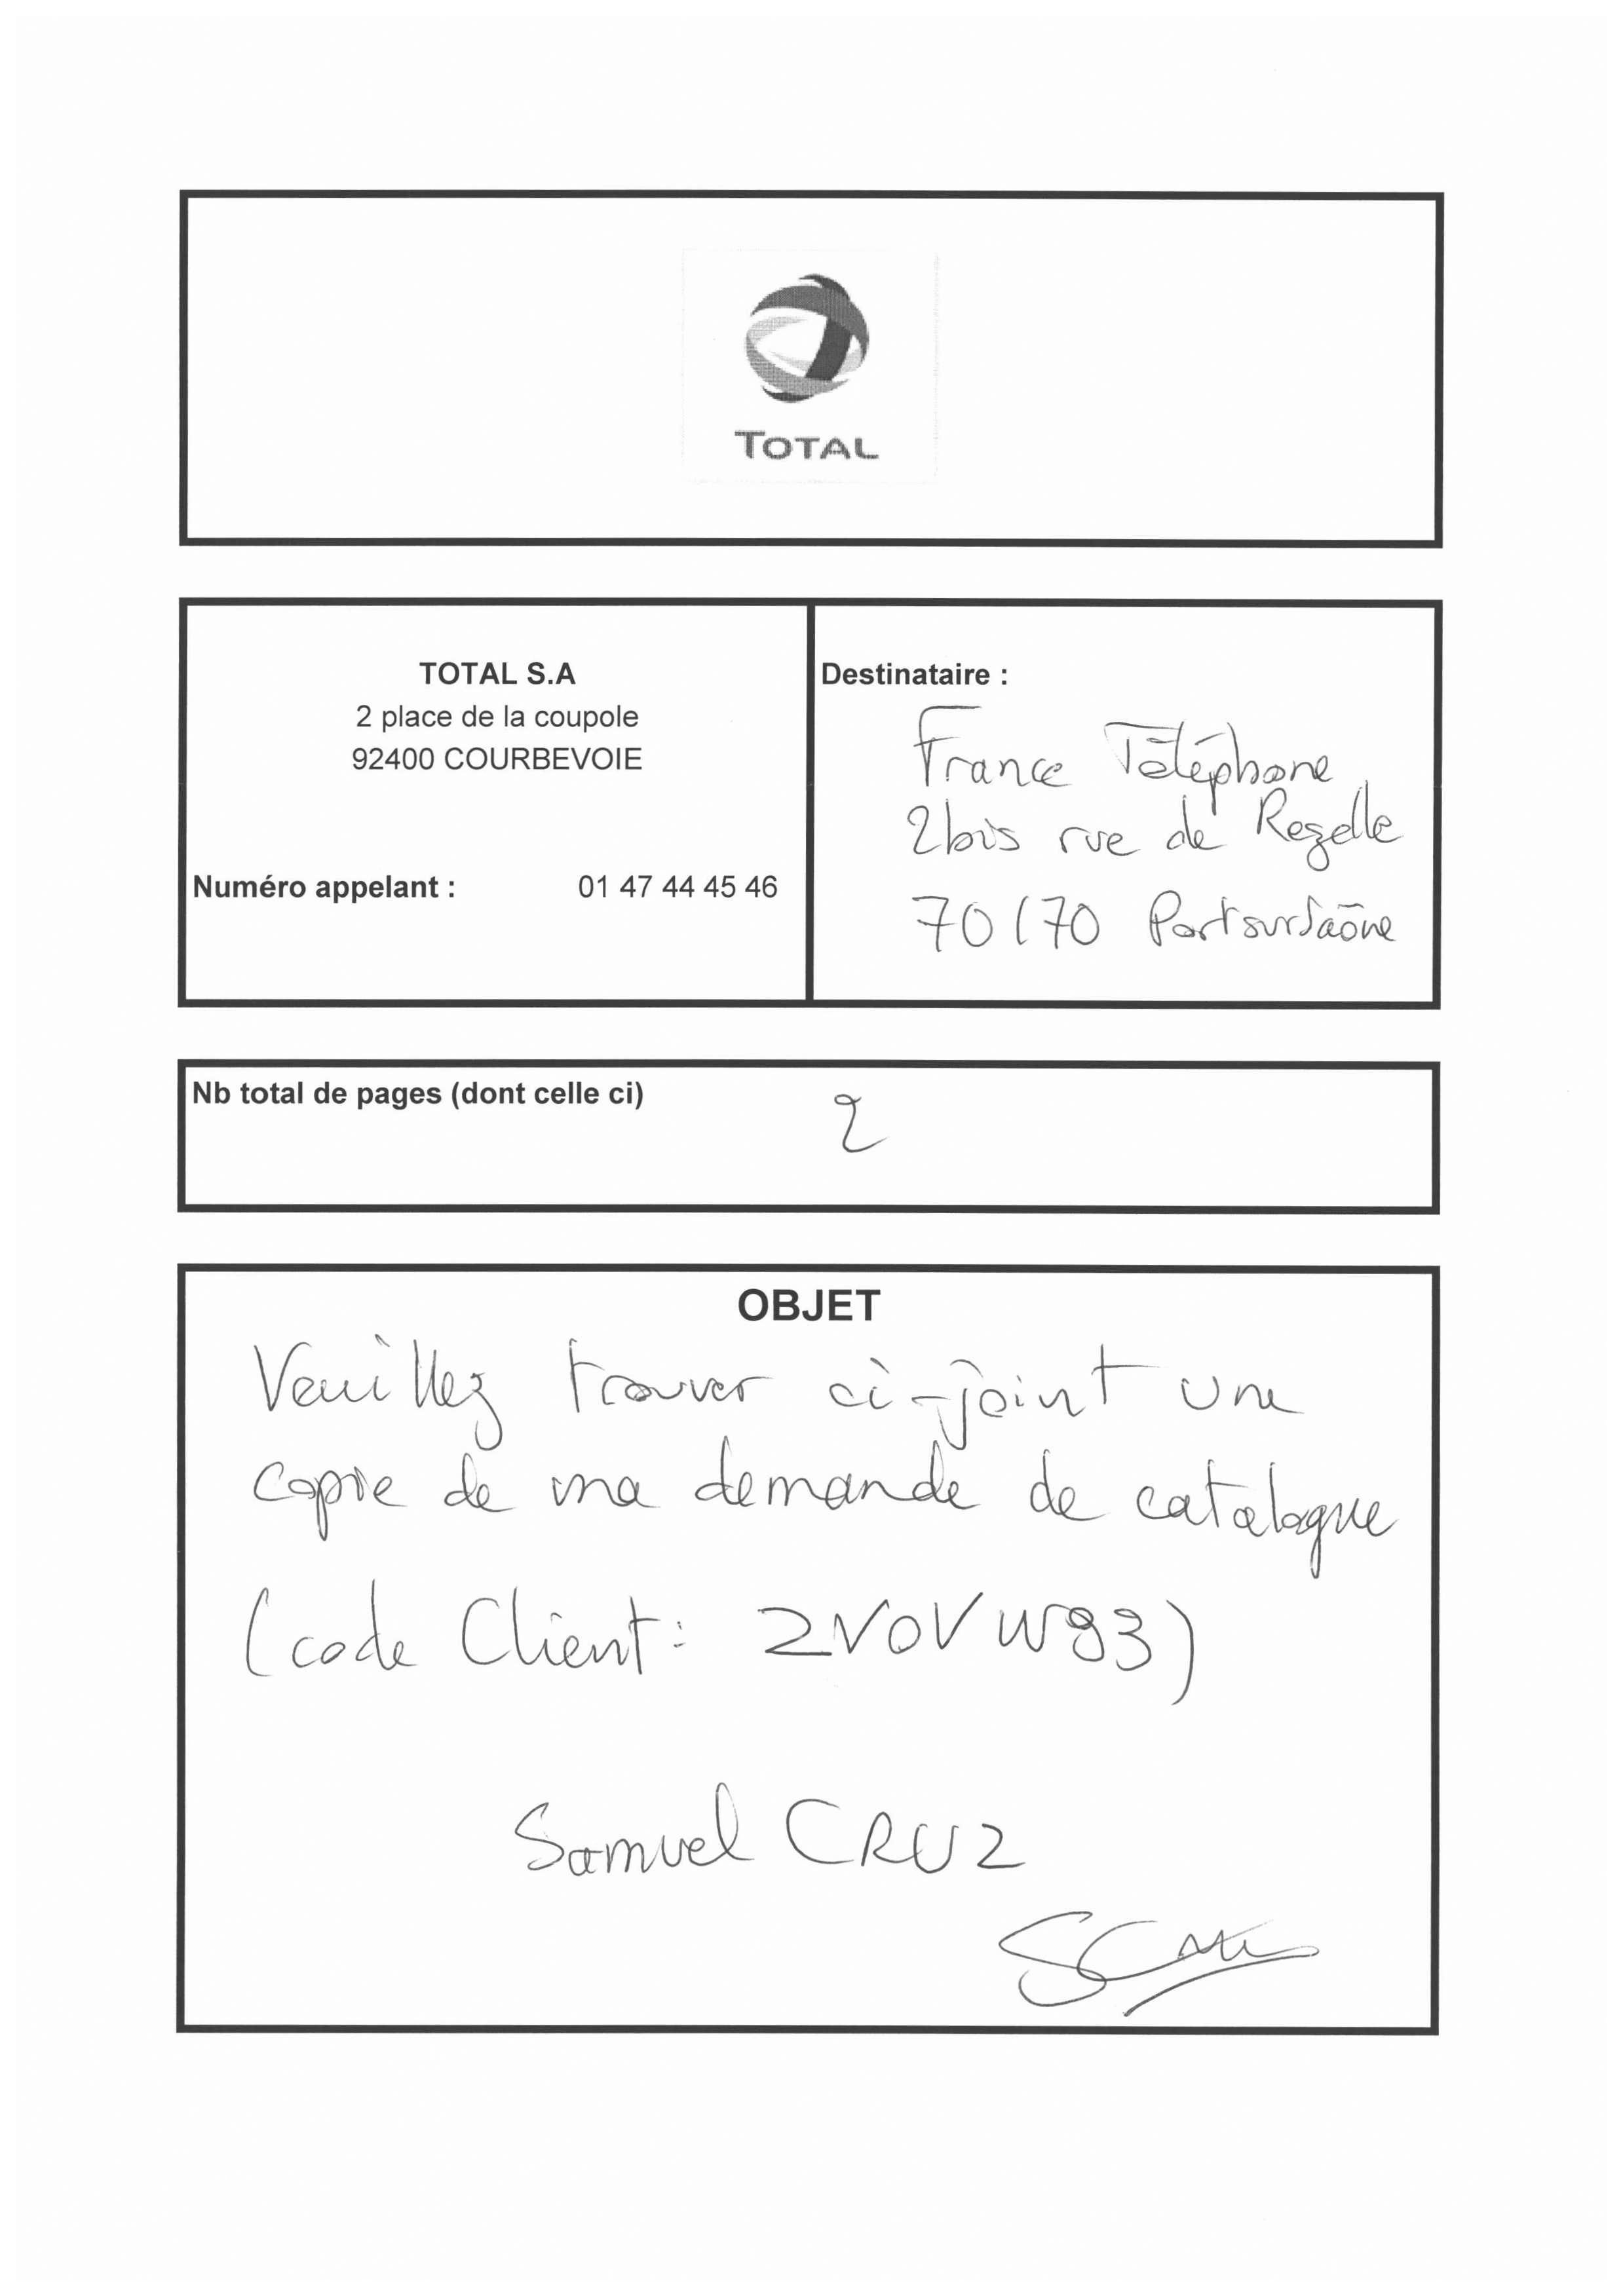 TOTAL
TOTAL S.A
2 place de la coupole
92400 COURBEVOIE
Numéro appelant : 01 47 44 45 46
Destinataire :
France Téléphone
2bis rue de Rezelle
70170 Port sur Saône
Nb total de pages (dont celle ci) 2
OBJET
Veuillez trouver ci-joint une
copie de ma demande de catalogue
(code Client: 2VOVW93)
Samuel CRUZ